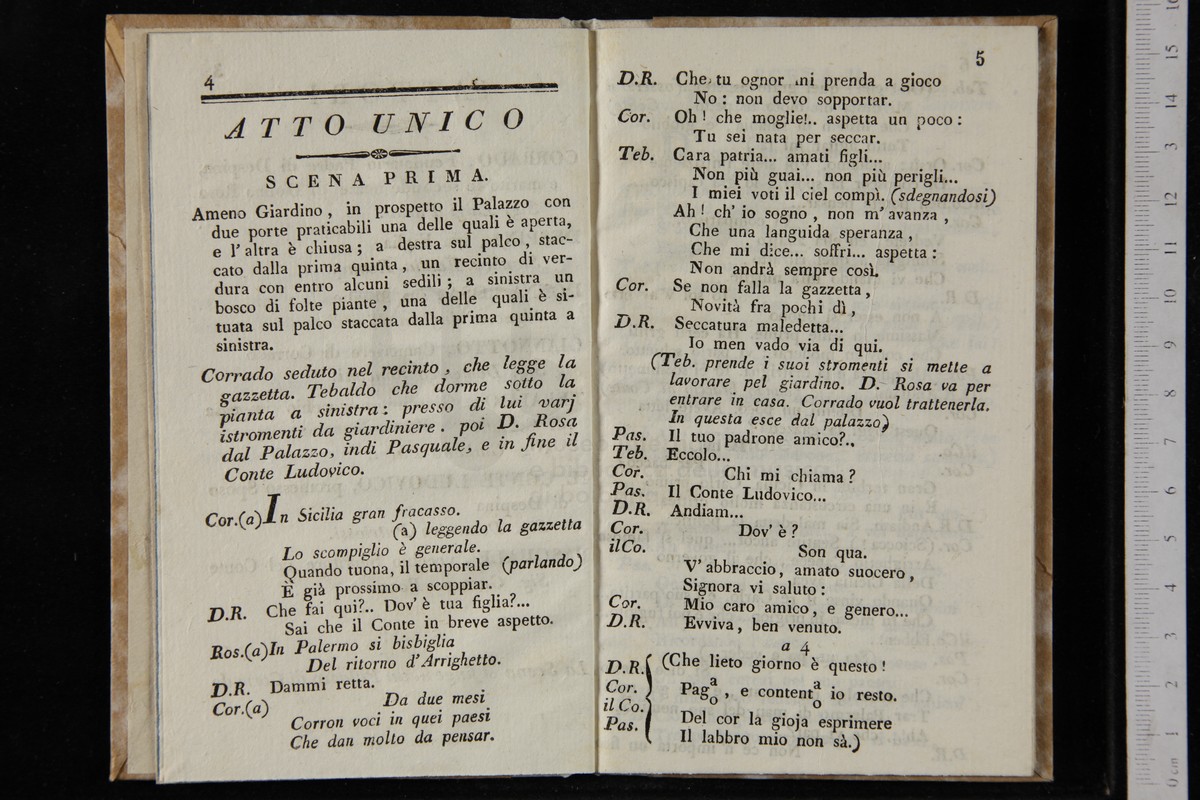 4
ATTO UNICO
SCENA PRIMA.
Ameno Giardino, in prospetto il Palazzo con
due porte praticabili una delle quali è aperta,
e l'altra è chiusa; a destra sul palco, stac-
cato dalla prima quinta, un recinto di ver-
dura con entro alcuni sedili; a sinistra un
bosco di folte piante, una delle quali è si-
tuata sul palco staccata dalla prima quinta a
sinistra.
Corrado seduto nel recinto, che legge la
gazzetta. Tebaldo che dorme sotto la
pianta a sinistra: presso di lui varj
istromenti da giardiniere. poi D. Rosa
dal Palazzo, indi Pasquale, e in fine il
Conte Ludovico.
Cor.(a) In Sicilia gran fracasso.
(a) leggendo la gazzetta
Lo scompiglio è generale.
Quando tuona, il temporale (parlando)
È già prossimo a scoppiar.
D.R. Che fai qui?.. Dov'è tua figlia?...
Sai che il Conte in breve aspetto.
Ros.(a) In Palermo si bisbiglia
Del ritorno d'Arrighetto.
D.R. Dammi retta.
Cor.(a) Da due mesi
Corron voci in quei paesi
Che dan molto da pensar.
5
D.R. Che tu ognor mi prenda a gioco
No: non devo sopportar.
Cor. Oh! che moglie!.. aspetta un poco:
Tu sei nata per seccar.
Teb. Cara patria... amati figli...
Non più guai... non più perigli...
I miei voti il ciel compì. (sdegnandosi)
Ah! ch'io sogno, non m'avanza,
Che una languida speranza,
Che mi dice... soffri... aspetta:
Non andrà sempre così.
Cor. Se non falla la gazzetta,
Novità fra pochi dì,
D.R. Seccatura maledetta...
Io men vado via di qui.
(Teb. prende i suoi stromenti si mette a
lavorare pel giardino. D. Rosa va per
entrare in casa. Corrado vuol trattenerla.
In questa esce dal palazzo)
Pas. Il tuo padrone amico?..
Teb. Eccolo...
Cor. Chi mi chiama?
Pas. Il Conte Ludovico...
D.R. Andiam...
Cor. Dov'è?
il Co. Son qua.
V'abbraccio, amato suocero,
Signora vi saluto:
Cor. Mio caro amico, e genero...
D.R. Evviva, ben venuto.
a 4
D.R. (Che lieto giorno è questo!
Cor. Pag a o , e content a o io resto.
il Co. Del cor la gioja esprimere
Pas. Il labbro mio non sà.)